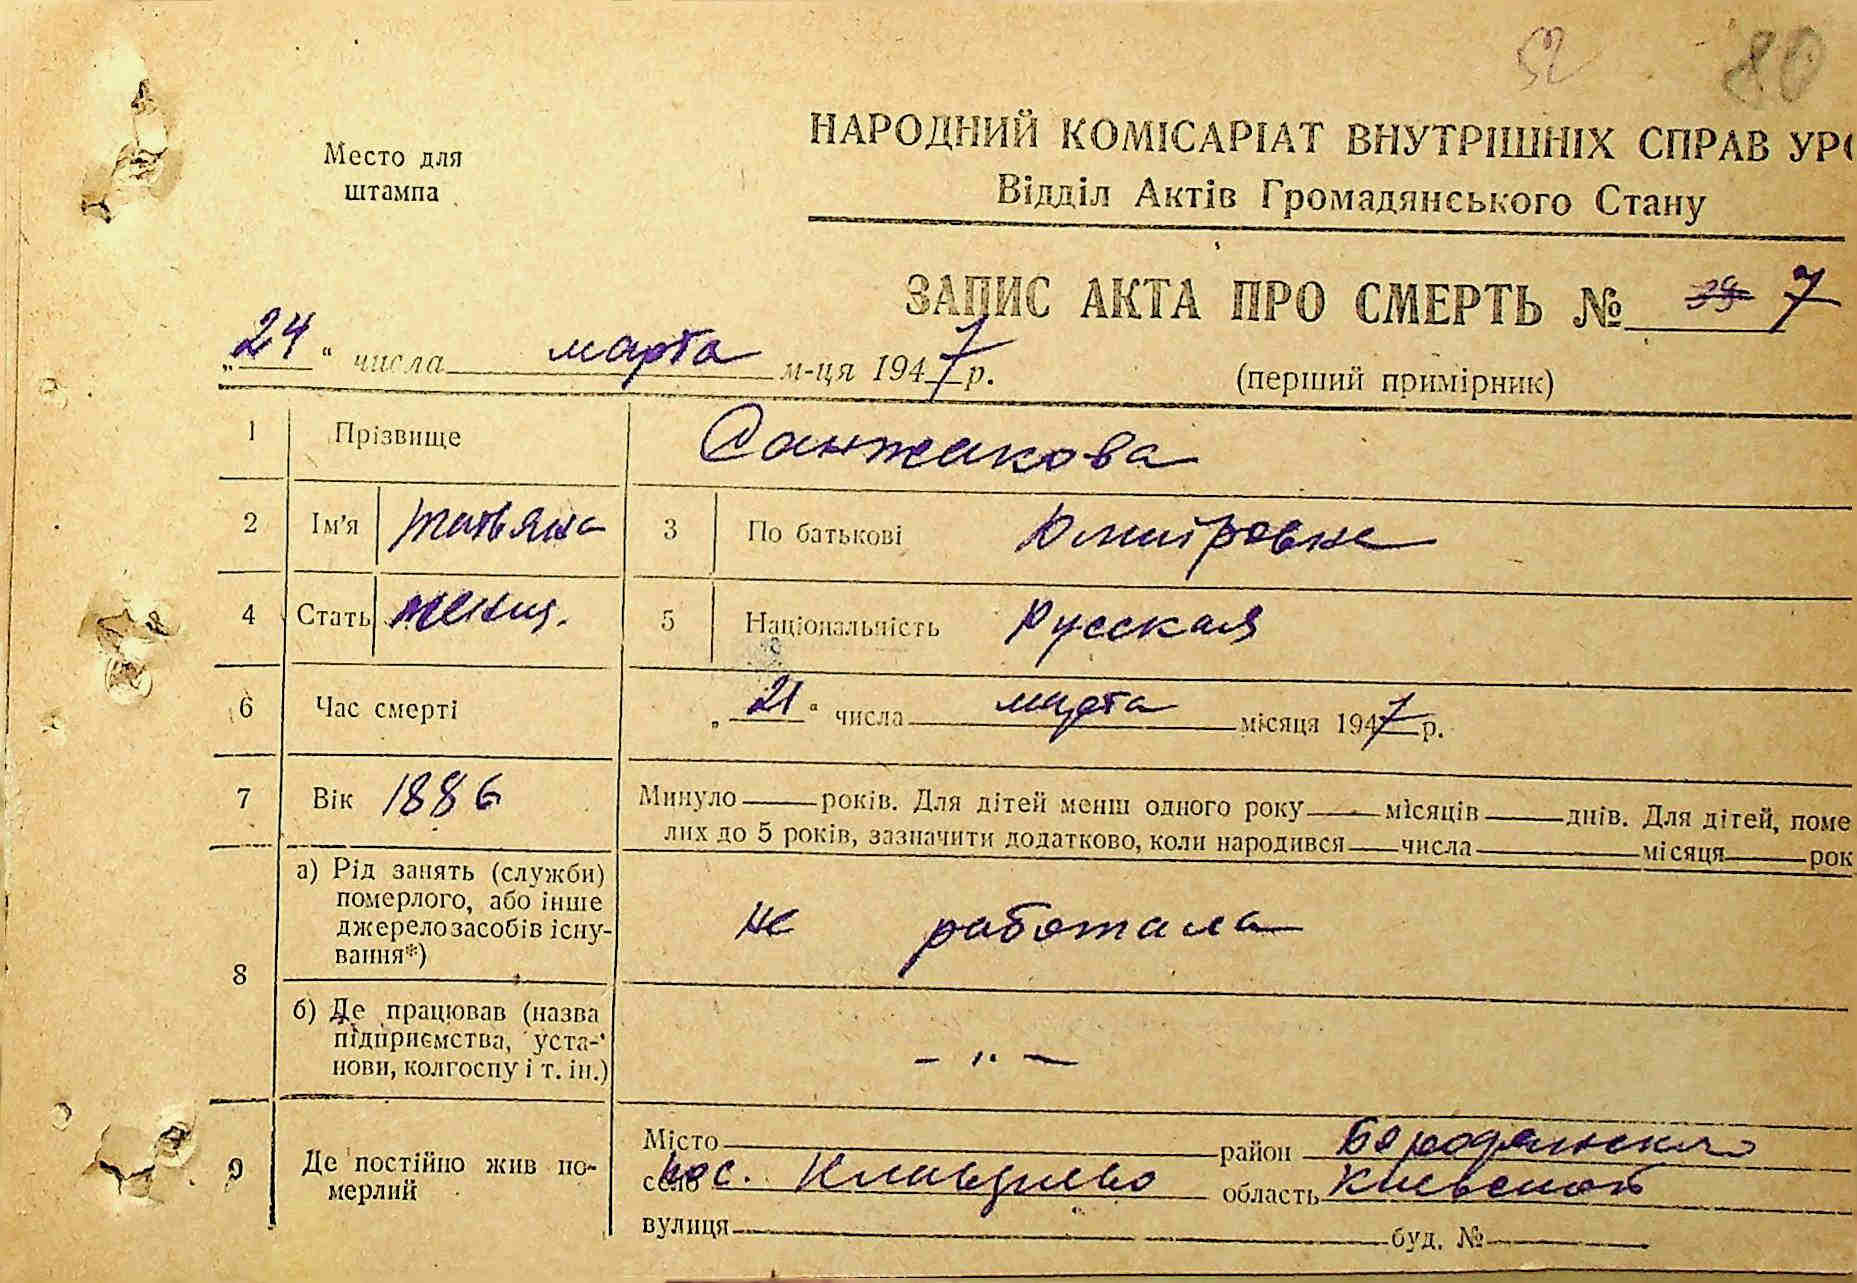 52 80
Место для
штампа
НАРОДНИЙ КОМІСАРІАТ ВНУТРІШНІХ СПРАВ УРС
Відділ Актів Громадянського Стану
ЗАПИС АКТА ПРО СМЕРТЬ № 7
„24“ числа марта м-ця 1947 р.
(перший примірник)
1 Прізвище Санжакова
2 Ім'я Татьяна 3 По батькові Дмитровна
4 Стать женщ. 5 Національність Русская
6 Час смерті „21“ числа марта місяця 1947 р.
7 Вік 1886 Минуло років. Для дітей менш одного року місяців днів. Для дітей, поме
лих до 5 років, зазначити додатково, коли народився числа місяця рок
8 а) Рід занять (служби)
померлого, або інше
джерело засобів існу-
вання*)
не работала
б) Де працював (назва
підприємства, уста-
нови, колгоспу і т. ін.)
– ,,. –
9 Де постійно жив по-
мерлий
Місто район Бородянского
село пос. Клавдиево область Киевской
вулиця буд. №